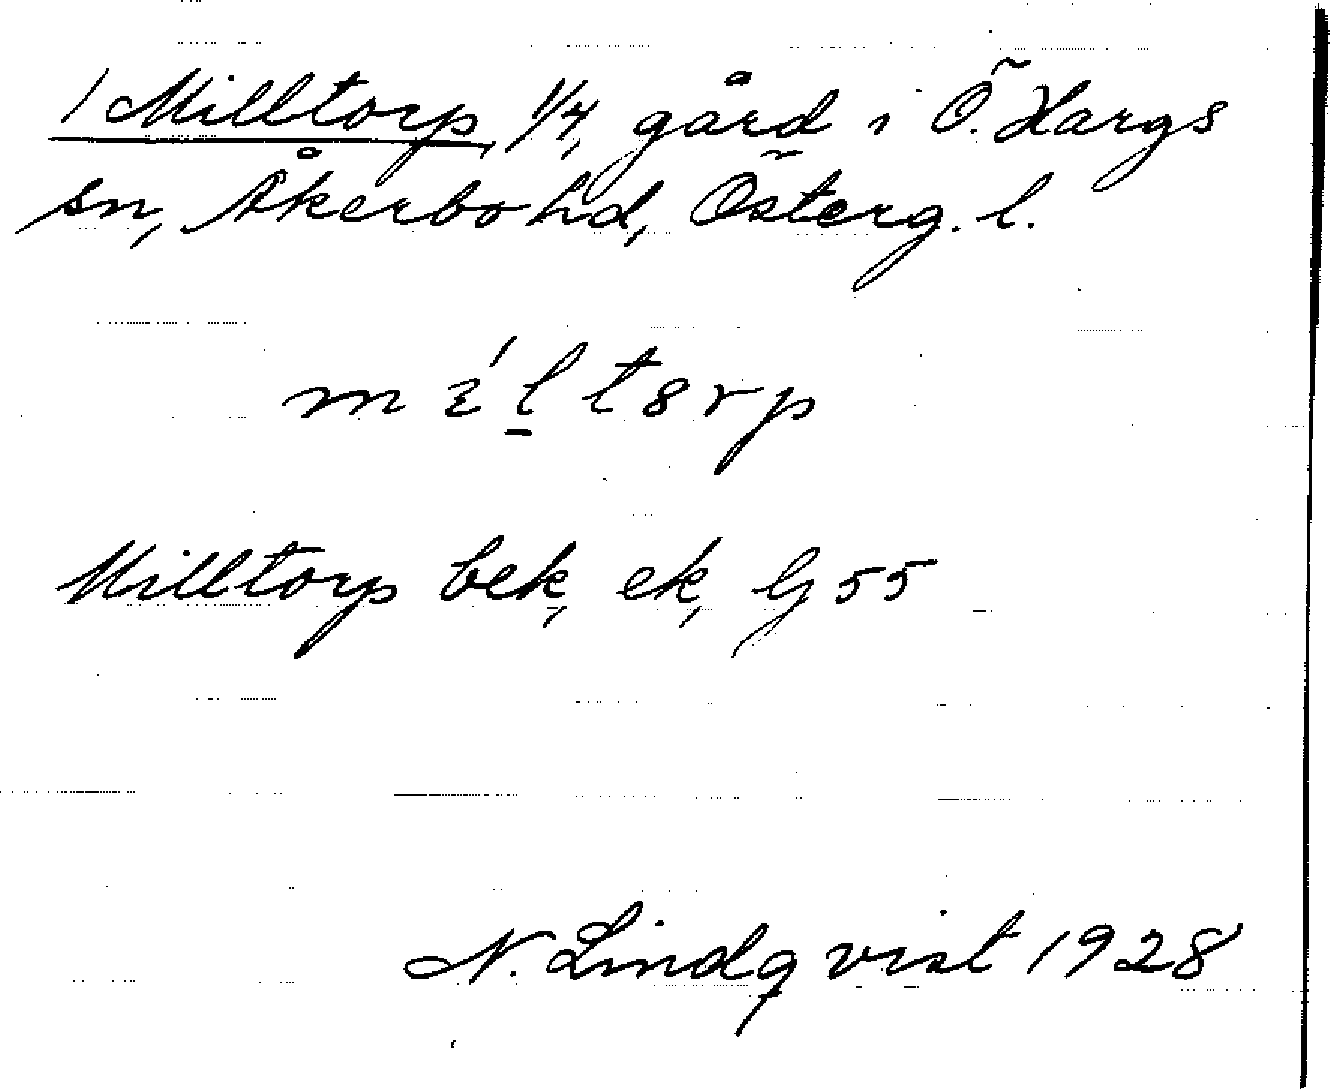 1 Milltorp, 1/4, gård i Ö. Hargs
sn, Åkerbo hd, Österg. l.
Milltorp bek, ek, Gj 55
N. Lindqvist 1928